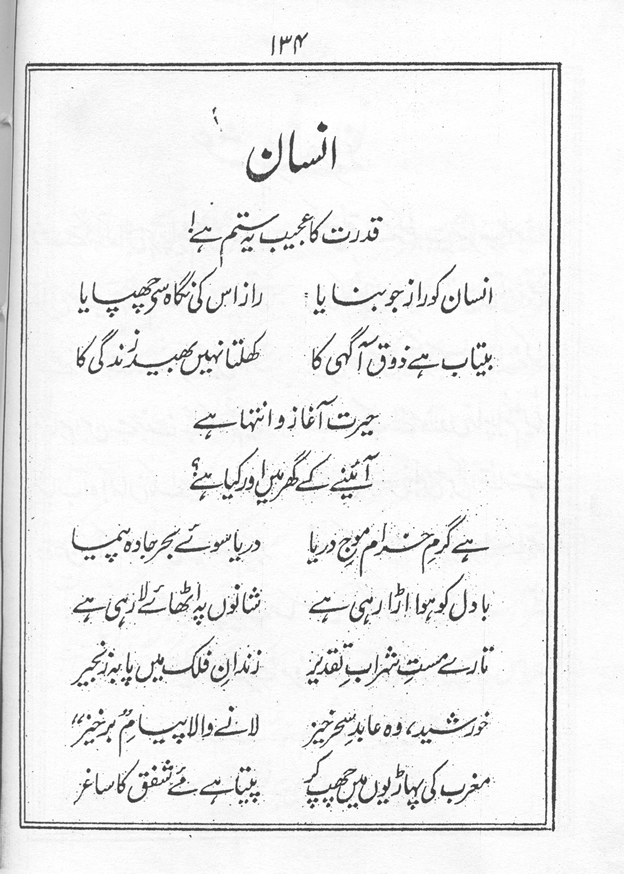 ۱۳۴
انسان
قدرت کا عجیب یہ ستم ہے!
انسان کو راز جو بنایا راز اس کی نگاہ سے چھپایا
بیتاب ہے ذوق آگہی کا کھلتا نہیں بھید زندگی کا
حیرت آغاز و انتہا ہے
آئینے کے گھر میں اور کیا ہے؟
ہے گرمِ خرام موجِ دریا دریا سوئے بحر جادہ پیما
بادل کو ہوا اڑا رہی ہے شانوں پہ اٹھائے لا رہی ہے
تارے مستِ شرابِ تقدیر زندانِ فلک میں پا بہ زنجیر
خورشید، وہ عابدِ سحر خیز لانے والا پیامِ ”برخیز“
مغرب کی پہاڑیوں میں چھپ کر پیتا ہے مئے شفق کا ساغر